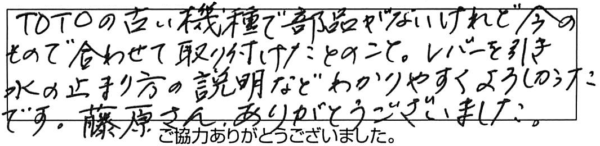 TOTOの古い機種で部品がないけれど今の
もので合わせて取り付けたとのこと。レバーを引き
水の止まり方の説明などわかりやすくよろしかった
です。藤原さん、ありがとうございました。
ご協力ありがとうございました。